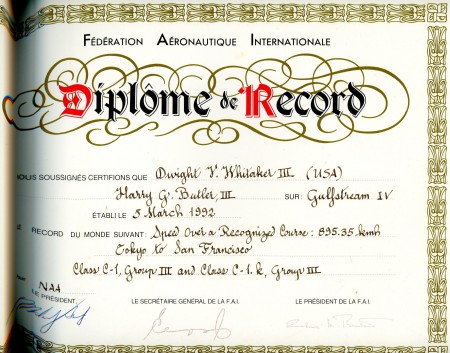 FÉDÉRATION AÉRONAUTIQUE INTERNATIONALE
Diplôme de Record
NOUS SOUSSIGNÉS CERTIFIONS QUE Dwight V. Whitaker III (USA)
Harry G. Butler, III SUR: Gulfstream IV
ÉTABLI LE 5 March 1992
RECORD DU MONDE SUIVANT: Speed Over a Recognized Course: 895.35 kmh
Tokyo to San Francisco
Class C-1, Group III and Class C-1.k, Group III
NAA
LE PRÉSIDENT, LE SECRÉTAIRE GÉNÉRAL DE LA F.A.I. LE PRÉSIDENT DE LA F.A.I.